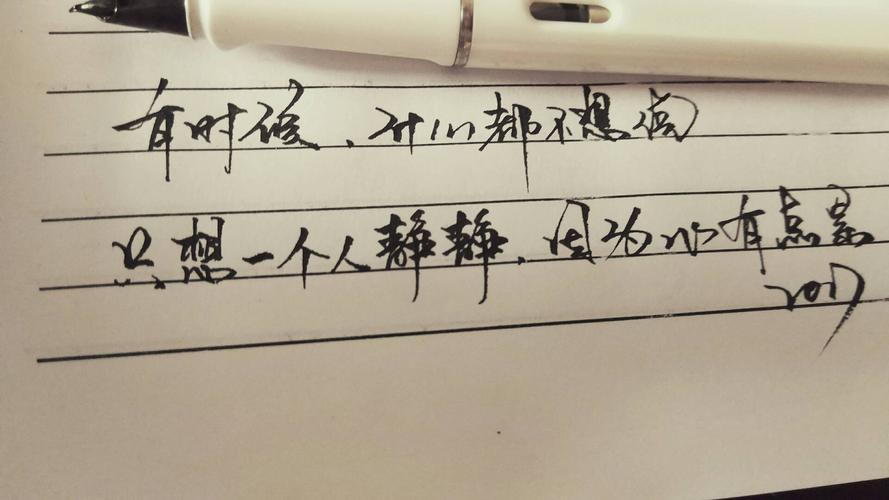 有时候、都不想
只想一个人静静，因为心有点累
2017